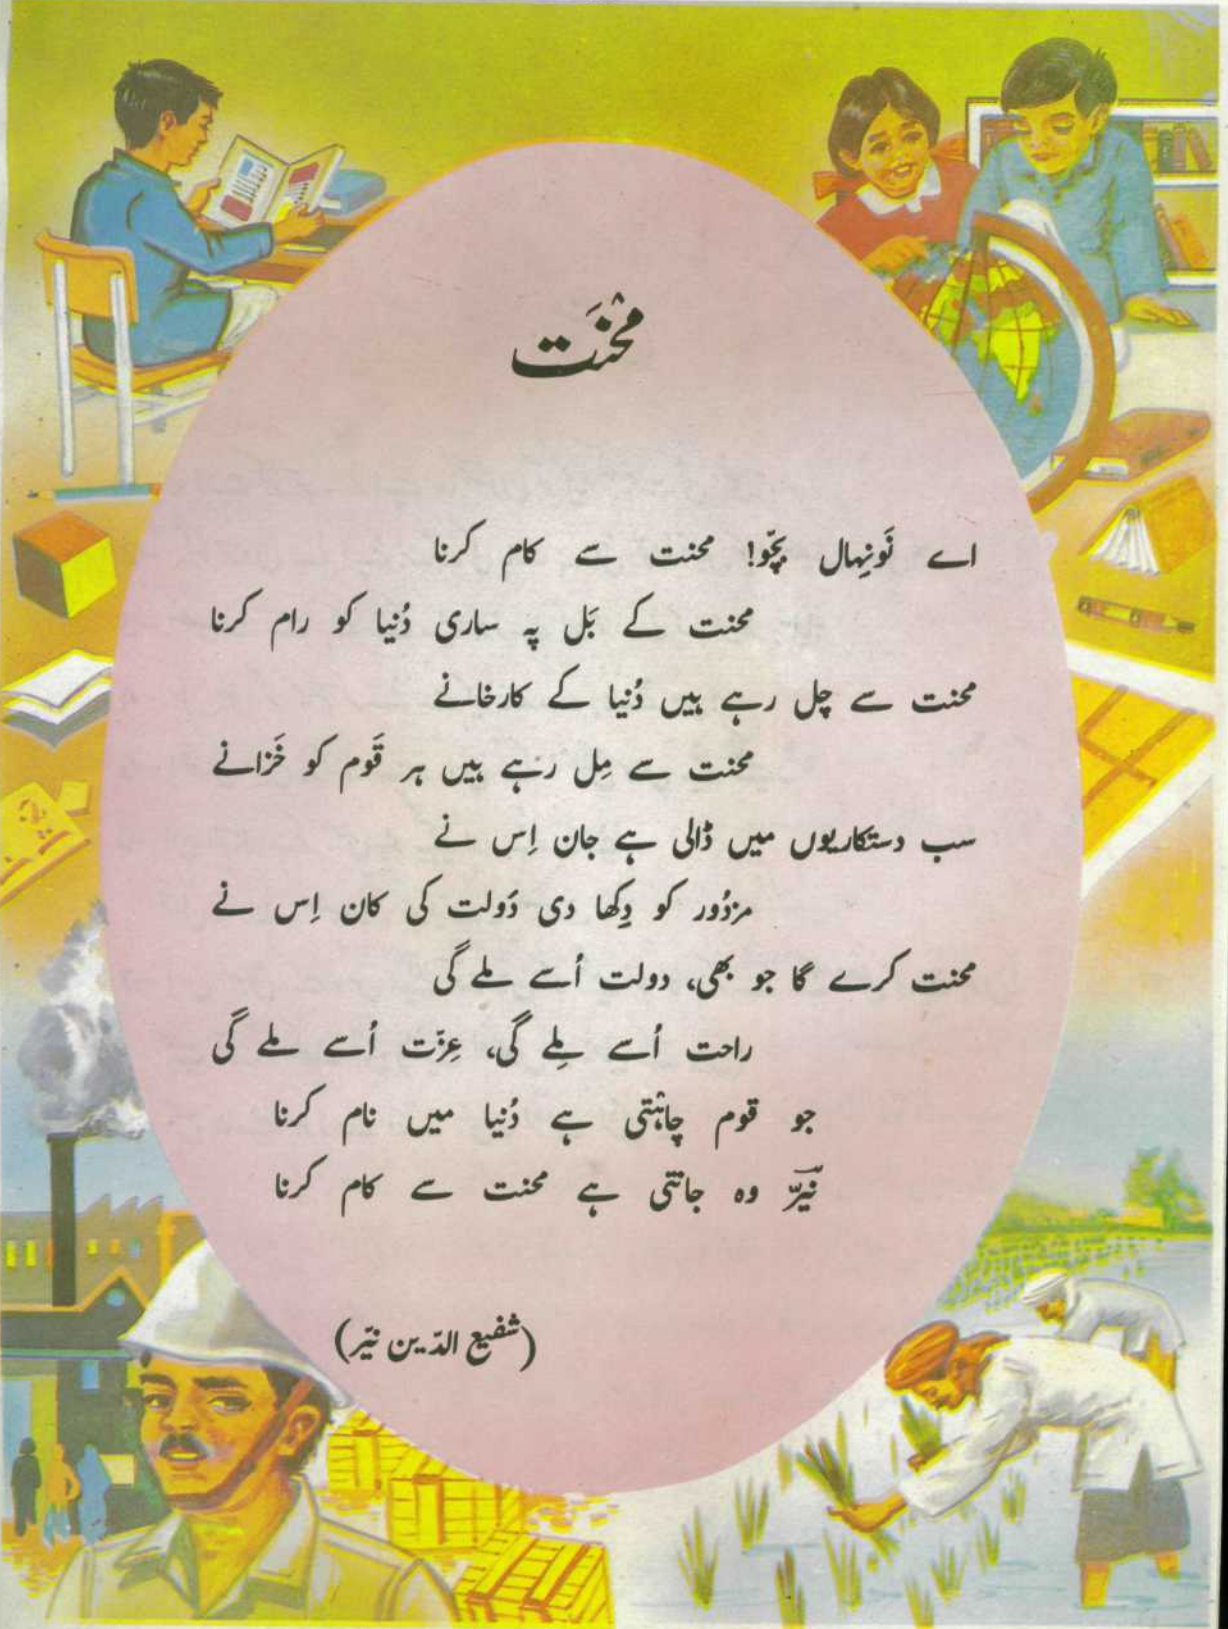 محْنَت
اے نَونِہال بچّو! محنت سے کام کرنا
محنت کے بَل پہ ساری دُنیا کو رام کرنا
محنت سے چل رہے ہیں دُنیا کے کارخانے
محنت سے مِل رہے ہیں ہر قَوم کو خَزانے
سب دستکاریوں میں ڈالی ہے جان اِس نے
مزدُور کو دِکھا دی دَولت کی کان اِس نے
محنت کرے گا جو بھی، دولت اُسے ملے گی
راحت اُسے مِلے گی، عِزّت اُسے ملے گی
جو قوم چاہْتی ہے دُنیا میں نام کرنا
نیّرؔ وہ جانْتی ہے محنت سے کام کرنا
(شفیع الدّین نیّر)